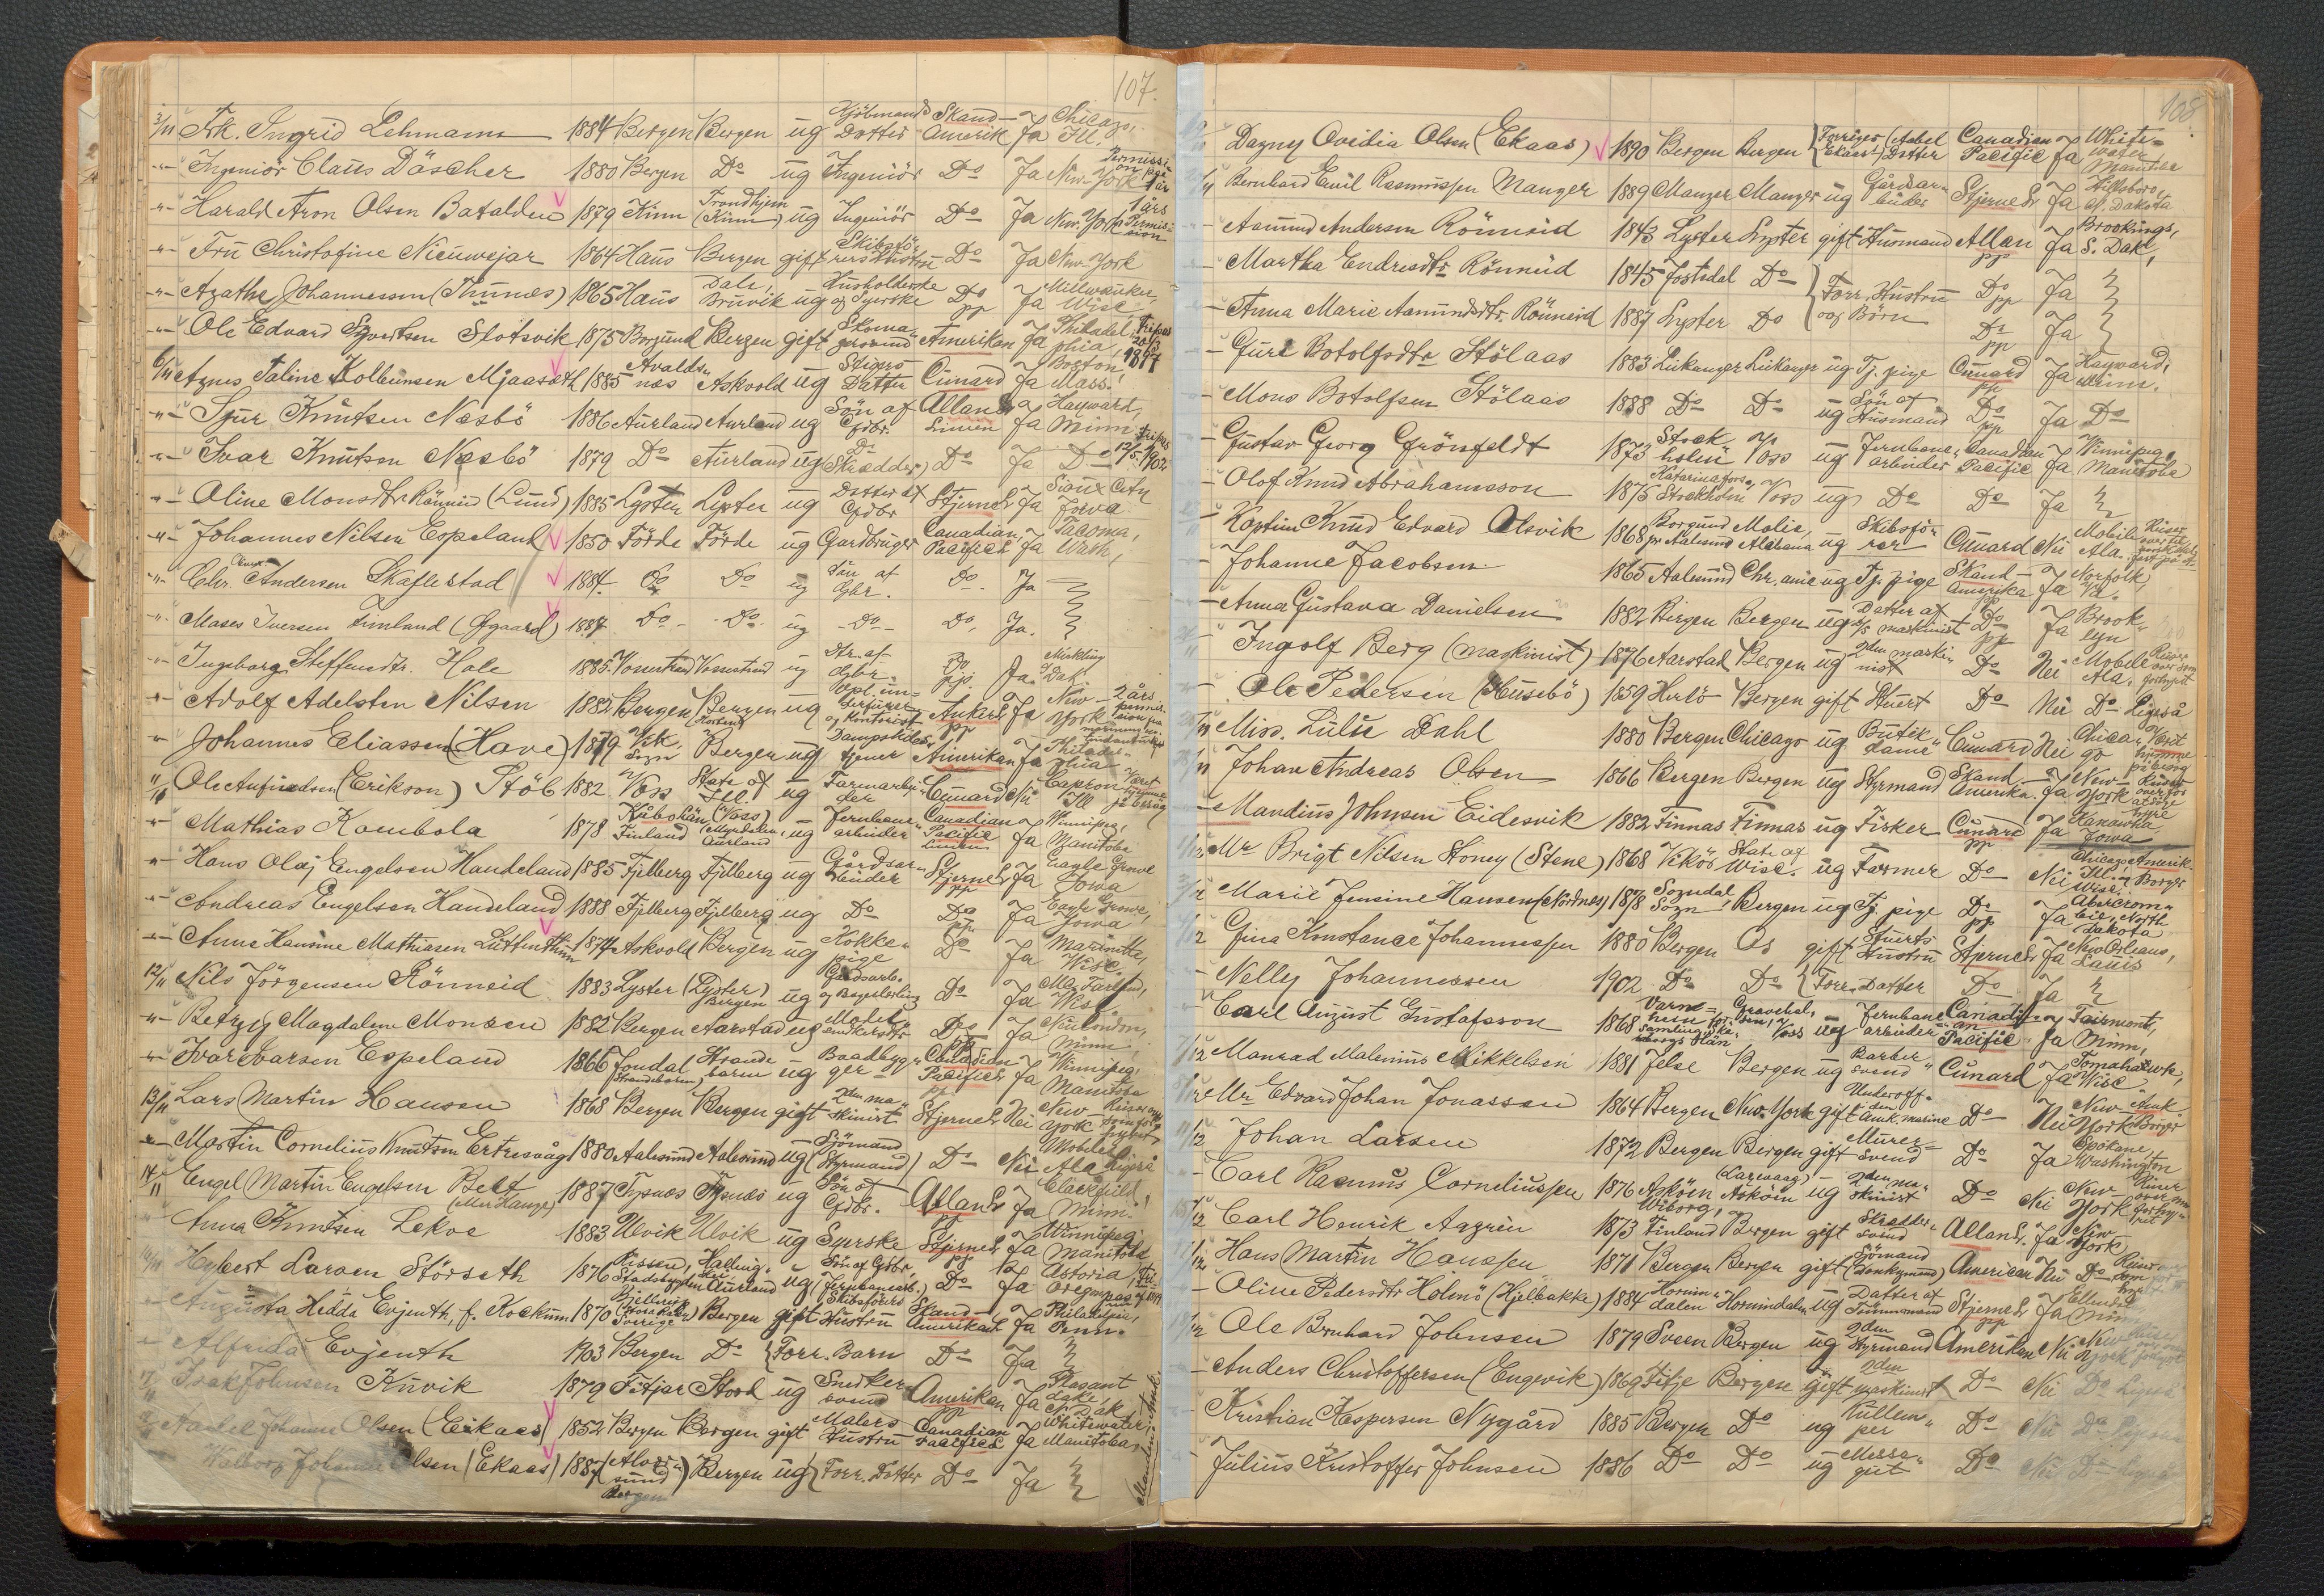 107.
3/11 Frk. Ingrid Lehmann 1884 Bergen Bergen ug Kjöbmands Datter Skand-Amerik Ja Chicago, Ill.
-"- Ingeniör Claus Döscher 1880 Bergen Do ug Ingeniör Do Ja New-York Permission på 1 år
-"- Harald Aron Olsen Batalden 1879 Kinn Trondhjem (Kinn) ug Ingeniör Do Ja New-York 1 års Permission
-"- Fru Christofine Nieuwejar 1864 Haus Bergen gift Skibsförers Hustru Do Ja New-York
-"- Agathe Johannessen (Thunæs) 1865 Haus Dale, Bruvik ug Husholderske og Syerske Do pp Ja Milwaukee, Wisc.
-"- Ole Edvard Syvertsen Slotsvik 1875 Borgund Bergen gift Skomagersvend Amerikan Ja Philadelphia, Fripas 20/3 1897
6/11 Agnes Taline Kolbeinsen Mjaaseth 1885 Avaldsnæs Askvold ug Skigers Datter Cunard Ja Boston, Mass.
-"- Sjur Knutsen Næsbö 1886 Aurland Aurland ug Sön af Gdbr. Allan Linien Ja Hayward, Minn.
-"- Ivar Knutsen Næsbö 1879 Do Aurland ug Do (Skrædder) Do Ja Do Fripas 12/5 1902
-"- Oline Monsdtr Rönneid (Lund) 1885 Lyster Lyster ug Datter af Gdbr Stjernel Ja Sioux City Iowa
-"- Johannes Nilsen Espeland 1850 Förde Förde ug Gardbruger Canadian Pacific Ja Tacoma, Wash,
-"- Chr. Andersen Skaflestad 1884. Do Do ug Sön af Gbr. Do. Ja
-"- Moses Iversen Timland (Øgaard) 1887 Do- Do- ug -Do- Do, Ja.
-"- Ingeborg Steffensdtr. Hole 1885 Vossestrand Vossestrand ug Dtr. af Gbr. Do pp Ja. N. Dak.
-"- Adolf Adelsten Nilsen 1882 Bergen Bergen (Horten) ug og Kontorist Anker pp Ja New-York 2 års permission
" Johannes Eliassen (Hove) 1879 Vik, Sogn Bergen ug Dampskibstjener Amerikan Ja Philadelphia
11/11 Ole Anfindsen (Erikson) Stöb 1882 Voss State of Ill. ug Farmarbeider Cunard Nei Capron Ill Været hjemme på besøg
-"- Mathias Kombola 1878 Finland (Voss) (Myrdalen, Aurland ug Jernbanearbeider Canadian Pacific Linien Ja Winnipeg, Manitoba
-"- Hans Olaj Engelsen Handeland 1885 Fjelberg Fjelberg ug Gårdsarbeider Stjernel pp Ja Eagle Grove Iowa
-"- Andreas Engelsen Handeland 1888 Fjelberg Fjelberg ug Do Do pp Ja Eagle Grove, Iowa
-"- Anne Hansine Mathiasen Littenthun 1877 Askvold Bergen ug Kokkepige Do Ja Marinette, Wisc.
12/11 Nils Jörgensen Rönneid 1883 Lyster (Lyster) Bergen ug Gårdsarb. og Do Ja Mc. Farland, Wisc.
-"- Betzzy Magdalene Monsen 1882 Bergen Aarstad ug Do Ja New London, Minn.
-"- Ivar Ivarsen Espeland 1866 Jondal (Strandebarm) Strandebarm ug Baadbygger Canadian Pacific pp Ja Winnipeg, Manitoba
13/11 Lars Martin Hansen 1868 Bergen Bergen gift 2den maskinist Stjernel Nei New-York Reiser over som forhyret
-"- Martin Cornelius Knutsen Ertresvåg 1880 Aalesund Aalesund ug Sjömand (Styrmand) Do Nei Mobile Ala Ligeså
14/11 Engel Martin Engelsen Belt 1887 Tysnæs Tysnæs ug Sön af Gdbr. Allan pp Ja Clarkfield, Minn.
" Anna Knutsen Lekve 1883 Ulvik Ulvik ug Syerske Stjernel pp Ja Winnipeg, Manitoba
16/11 Hybert Larsen Störseth 1876 Rissen, Stadsbygden Aurland ug Sön af Gdbr. (Jernbanearb.) Do Ja Astoria, Oregon
-"- Augusta Hedda Evjenth, f. Kockum 1870 Sverige Bergen gift Skibsförers Hustru Skand-Amerika Ja Philadelphia, Penn.
" Alfrida Evjenth 1903 Bergen Do Forr. Barn Do Ja
17/11 Isak Johnsen Kuvik 1879 Fitjar Stord ug Snedkersvend Amerikan pp Ja N. Dak
Aadel Johanne Olsen (Eikaas) 1852 Bergen Bergen gift Malers Hustru Canadian Pacific Ja Whitewater, Manitoba,
Walborg Johanne Olsen (Ekaas) 1887 Bergen Bergen ug Forr. Datter Do Ja
108
Dagny Ovidia Olsen (Ekaas) 1890 Bergen Bergen Forriges (Aadel Ekaas) Datter Canadian Pacific Ja Whitewater Manitoba
Bernhard Emil Rasmussen Manger 1889 Manger Manger ug Gårdsarbeider Stjernel Ja Hillsboro, N. Dakota
- Aamund Andersen Rönneid 1843 Lyster Lyster gift Husmand Allan pp Ja Brookings, S. Dak,
- Martha Endresdtr Rönneid 1845 Jostedal Do Forr. Hustru og Börn Do pp Ja
- Anna Marie Aamundsdtr. Rönneid 1887 Lyster Do Do pp Ja
- Guri Botolfsdtr Stölaas 1883 Leikanger Leikanger ug Tj. pige Cunard pp Ja Hayward, Minn.
- Mons Botolfsen Stölaas 1888 Do Do ug Sön af Husmand Do pp Ja Do
- Gustav Georg Grönfeldt 1873 Stockholm Voss ug Jernbanearbeider Canadian Pacific Ja Winnipeg, Manitoba
- Olof Knud Abrahamsson 1875 Stockholm Voss ug Do Do Ja
- Kaptein Knud Edvard Alsvik 1868 Borgund pr Aalesund Mobile, Alabama ug Skibsförer Cunard Nei Mobile Ala.
- Johanne Jacobsen 1865 Aalesund Chr. ania ug Tj. pige Skand-Amerika pp Ja Norfolk, Va.
- Anna Gustava Danielsen 1882 Bergen Bergen ug Datter af maskinist Do pp Ja Brooklyn
Ingolf Berg (maskinist) 1876 Aarstad Bergen ug 2den maskinist Do Nei Mobile Ala. Reiser over som forhyret
- Ole Pedersen (Husebö) 1859 Herlö Bergen gift Stuert Do Nei Do Ligeså
Miss. Lulu Dahl 1880 Bergen Chicago ug Butikdame Cunard Nei Chicago Været hjemme på besøg
Johan Andreas Olsen 1866 Bergen Bergen ug Styrmand Skand-Amerika. Ja New-York
- Mandius Johnsen Eidesvik 1882 Finnås Finnås ug Fisker Cunard pp Ja Kanawha Iowa
1/12 Mr Brigt Nilsen Stoney (Stene) 1868 Vikör State af Wisc. ug Farmer Do Nei Amerik. Borger
Marie Jensine Hansen (Nordnes) 1878 Sogndal, Sogn Bergen ug Tj. pige Do pp Ja Abercrombie, North Dakota
Gina Konstance Johannessen 1880 Bergen Os gift Stuerts Hustru Stjernel Ja New Orleans, Louis
- Nelly Johannessen 1902 Do Do Forr. Datter Do Ja
Carl August Gustafsson 1868 Gravehalsen, Voss ug Jernbanearbeider Canadian Pacific Ja Fairmont, Minn,
7/12 Manrad Malenius Mikkelsen 1881 Jelse Bergen ug Barbersvend Cunard Ja Tomahawk, Wisc.
Mr Edvard Johan Jonassen 1864 Bergen New-York gift Underoff. i den Amk. marine Do Nei New-York Amk Borger
Johan Larsen 1872 Bergen Bergen gift Murersvend Do Ja Spokane, Washington
- Carl Rasmus Corneliussen 1876 Asköen Asköen ug 2den maskinist Do Nei New-York
Carl Henrik Aagren 1873 Wiborg, Finland Bergen gift Skræddersvend Allan. Ja New York
Hans Martin Hanssen 1871 Bergen Bergen gift Sömand (Donkeymand) American Nei Do
- Oline Pedersdtr Holmö (Hjelbakke) 1884 Hornindalen Hornindalen ug Datter af Tömmermand Stjernel pp Ja
Ole Bernhard Johnsen 1879 Sveen Bergen ug 2den Styrmand Amerikan Nei New York
- Anders Christoffersen (Engevik) 1869 Fitje Bergen gift 2den maskinist Do Nei Do Ligeså
- Kristian Kaspersen Nygård 1885 Bergen Do ug Kullemper Do Nei Do Ligeså
- Julius Kristoffer Johnsen 1886 Do Do ug Messegut Do Nei Do